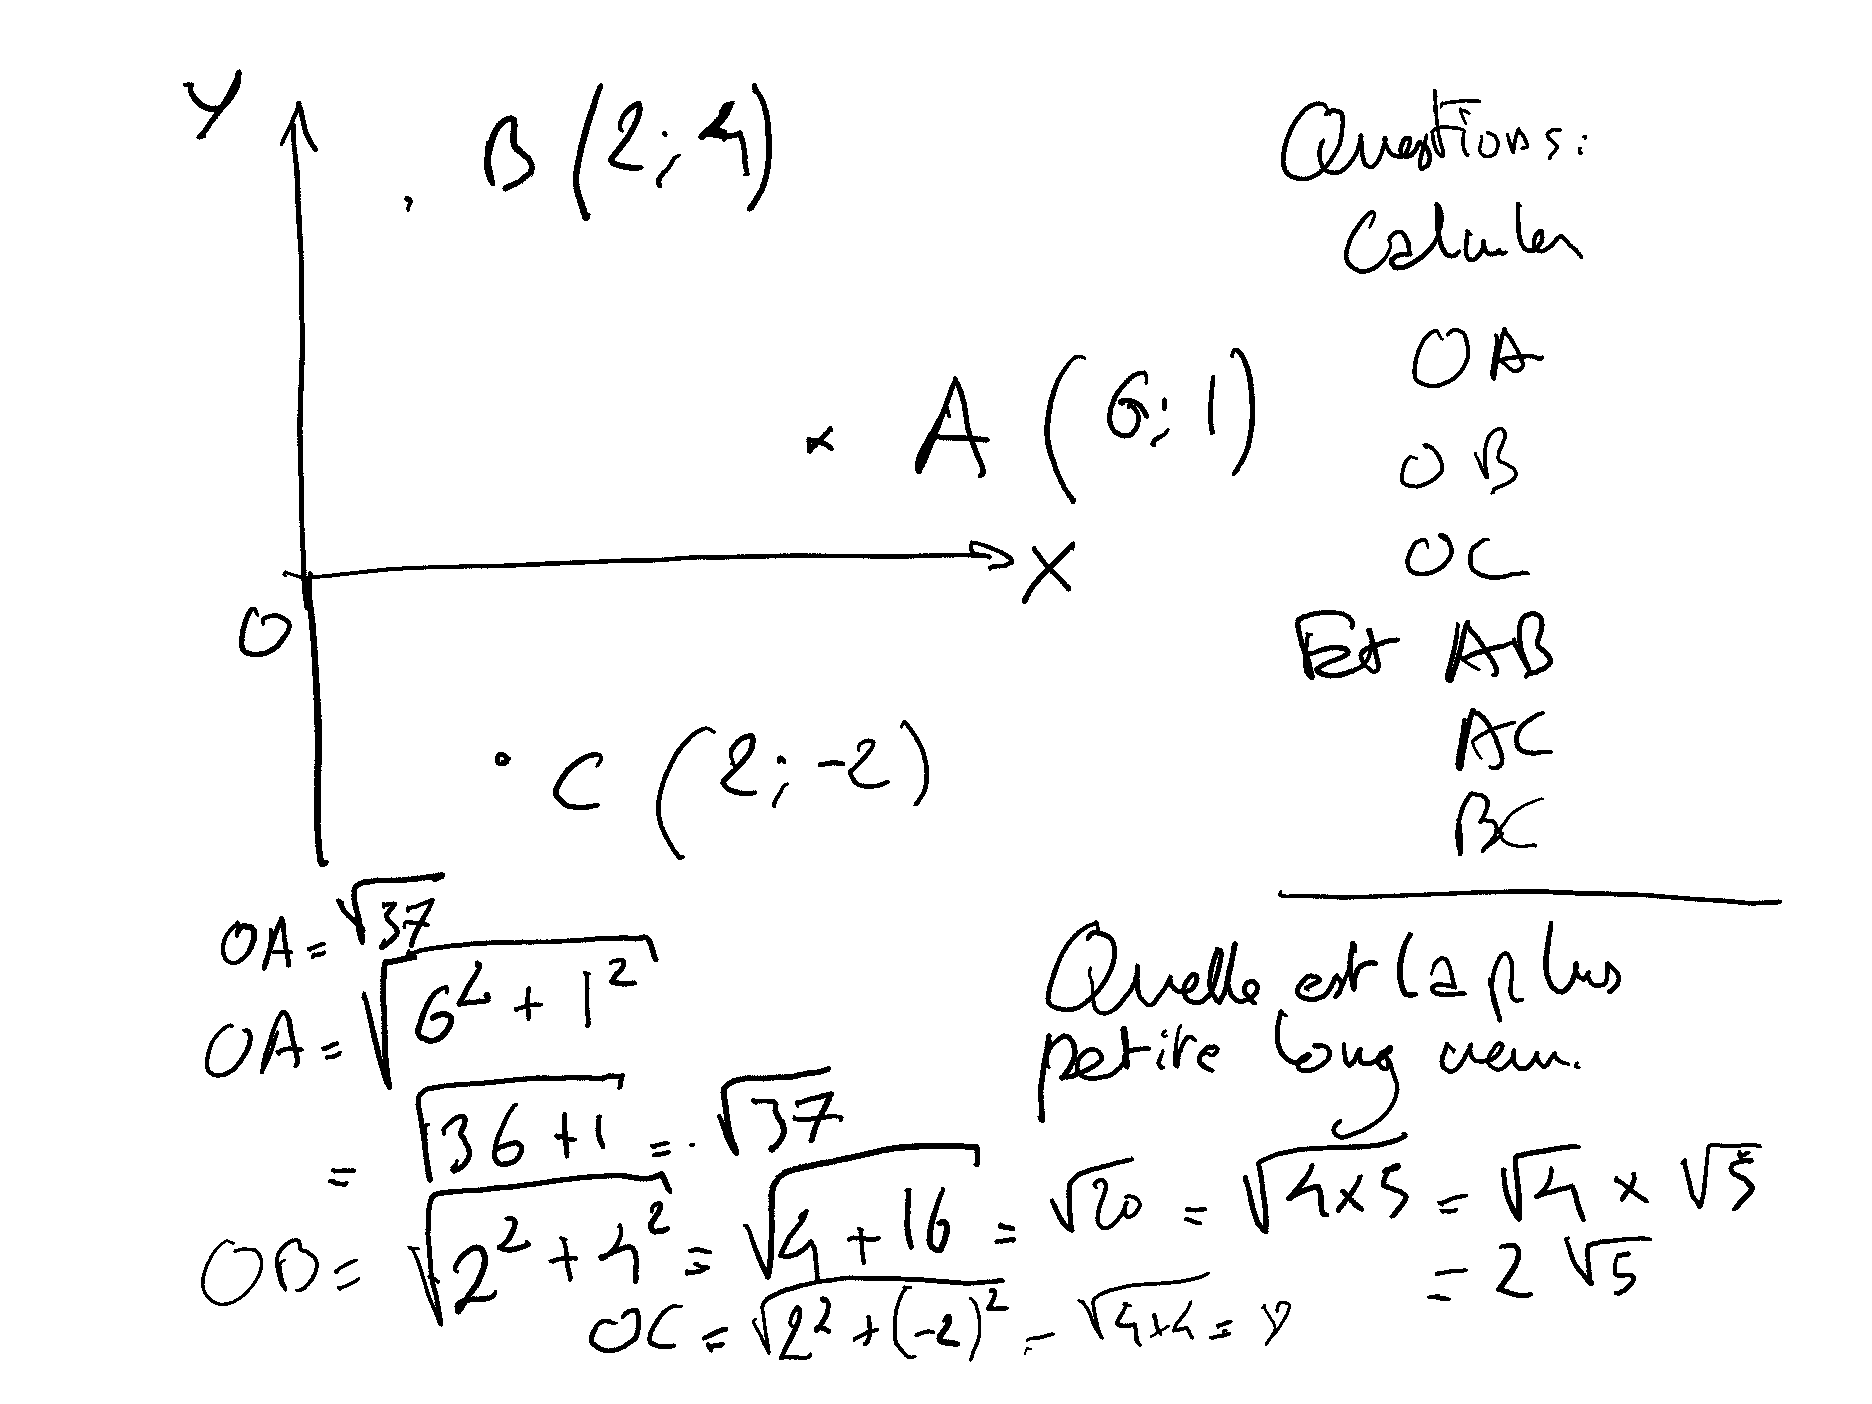 Y
B (2; 4)
A (6; 1)
X
O
C (2; -2)
Questions:
Calculer
OA
OB
OC
Et AB
AC
BC
Quelle est la plus
petite longueur.
OA = √37
OA = √(6² + 1²)
= √(36 + 1) = √37
OB = √(2² + 4²) = √(4 + 16) = √20 = √(4×5) = √4 × √5
= 2 √5
OC = √(2² + (-2)²) = √(4+4) =